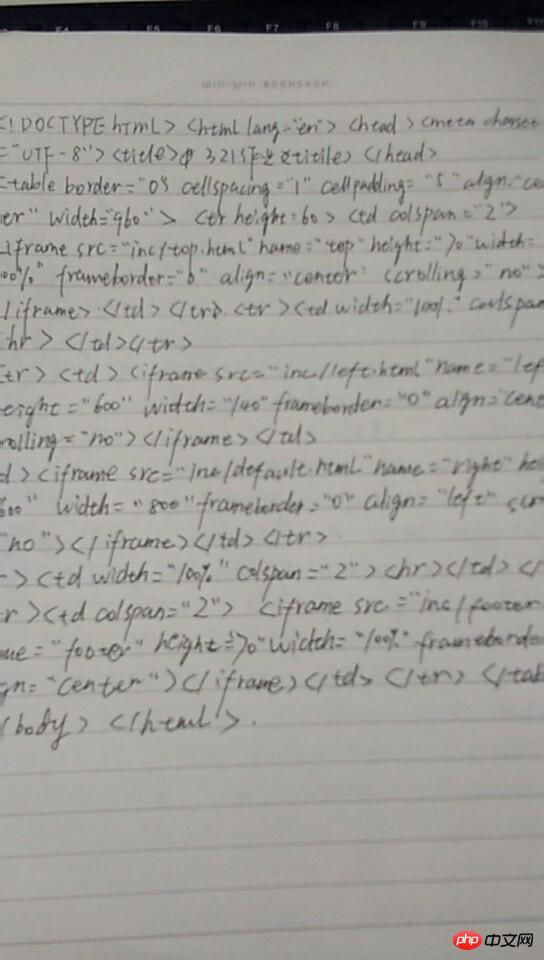 F4 F5 F6 F7 F8 F9 F10 F11
WIN-WIN BOOKSHOP
<!DOCTYPE html> <html lang="en"> <head> <meta charset
="UTF-8"> <title> 3215 titile> </head>
<table border="0" cellspacing="1" cellpadding="5" align="ce
er" width="960"> <tr height=60> <td colspan="2">
iframe src="inc/top.html" name="top" height="70" width=
00%" frameborder="0" align="center" scrolling="no">
/iframe> </td> </tr> <tr><td width="100%" colspan
hr> </td></tr>
tr> <td> <iframe src="inc/left.html" name="lef
eight="600" width="140" frameborder="0" align="cent
rolling="no"></iframe></td>
d><iframe src="inc/default.html" name="right" hei
600" width="800" frameborder="0" align="left" scr
"no"></iframe></td></tr>
><td width="100%" colspan="2"><hr></td></
r><td colspan="2"> <iframe src="inc/footer
me="footer" height="70" width="100%" frameborde
gn="center"></iframe></td> </tr> </tab
/body> </html>.
php 中文网